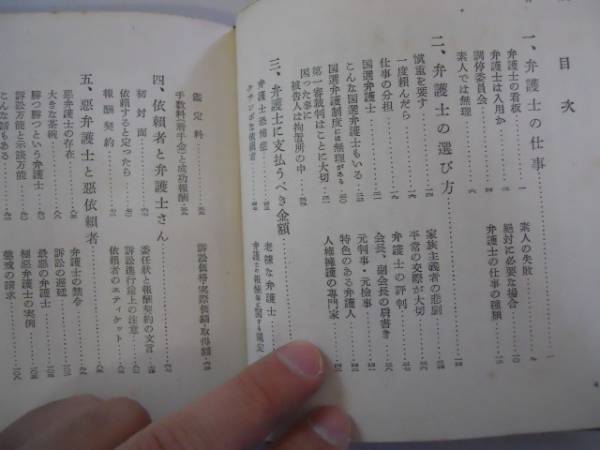 目次
一、弁護士の仕事
弁護士の看板
弁護士は入用か
調停委員会
素人では無理
素人の失敗
絶対に必要な場合
弁護士の仕事の種類
二、弁護士の選び方
慎重を要す
一度頼んだら
仕事の分担
国選弁護士
こんな国選弁護士もいる
国選弁護制度には無理がある
第一審裁判はことに大切
困った事に
被告人は拘置所の中
家族主義者の悲劇
平常の交際が大切
弁護士の評判
会長、副会長の肩書き
元判事・元検事
特色のある弁護人
人権擁護の専門家
三、弁護士に支払うべき金額
弁護士恐怖症
ケチンボな依頼者
老練な弁護士
弁護士の報酬等に関する規定
鑑定料
手数料(着手金)と成功報酬
訴訟価格・実際価額・取得額
四、依頼者と弁護士さん
初対面
依頼すると定ったら
報酬契約
委任状と報酬契約の文言
訴訟進行途上の注意
依頼者のエティケット
五、悪弁護士と悪依頼者
悪弁護士の存在
大きな悪純
勝つ勝つという弁護士
訴訟万能と示談万能
こんな話もある
弁護士の禁令
訴訟の遅延
最悪の弁護士
極悪弁護士の実例
懲戒の請求